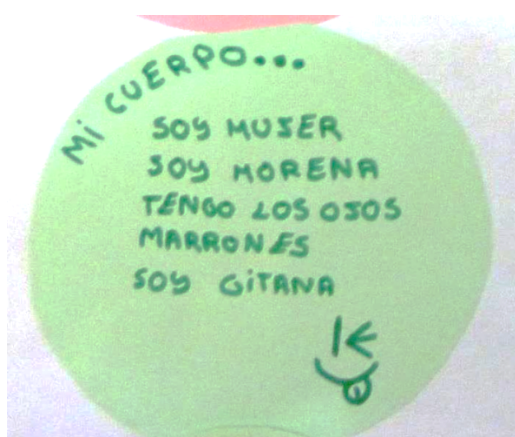 Mi CUERPO...
SOY MUJER
SOY MORENA
TENGO LOS OJOS
MARRONES
SOY GiTANA